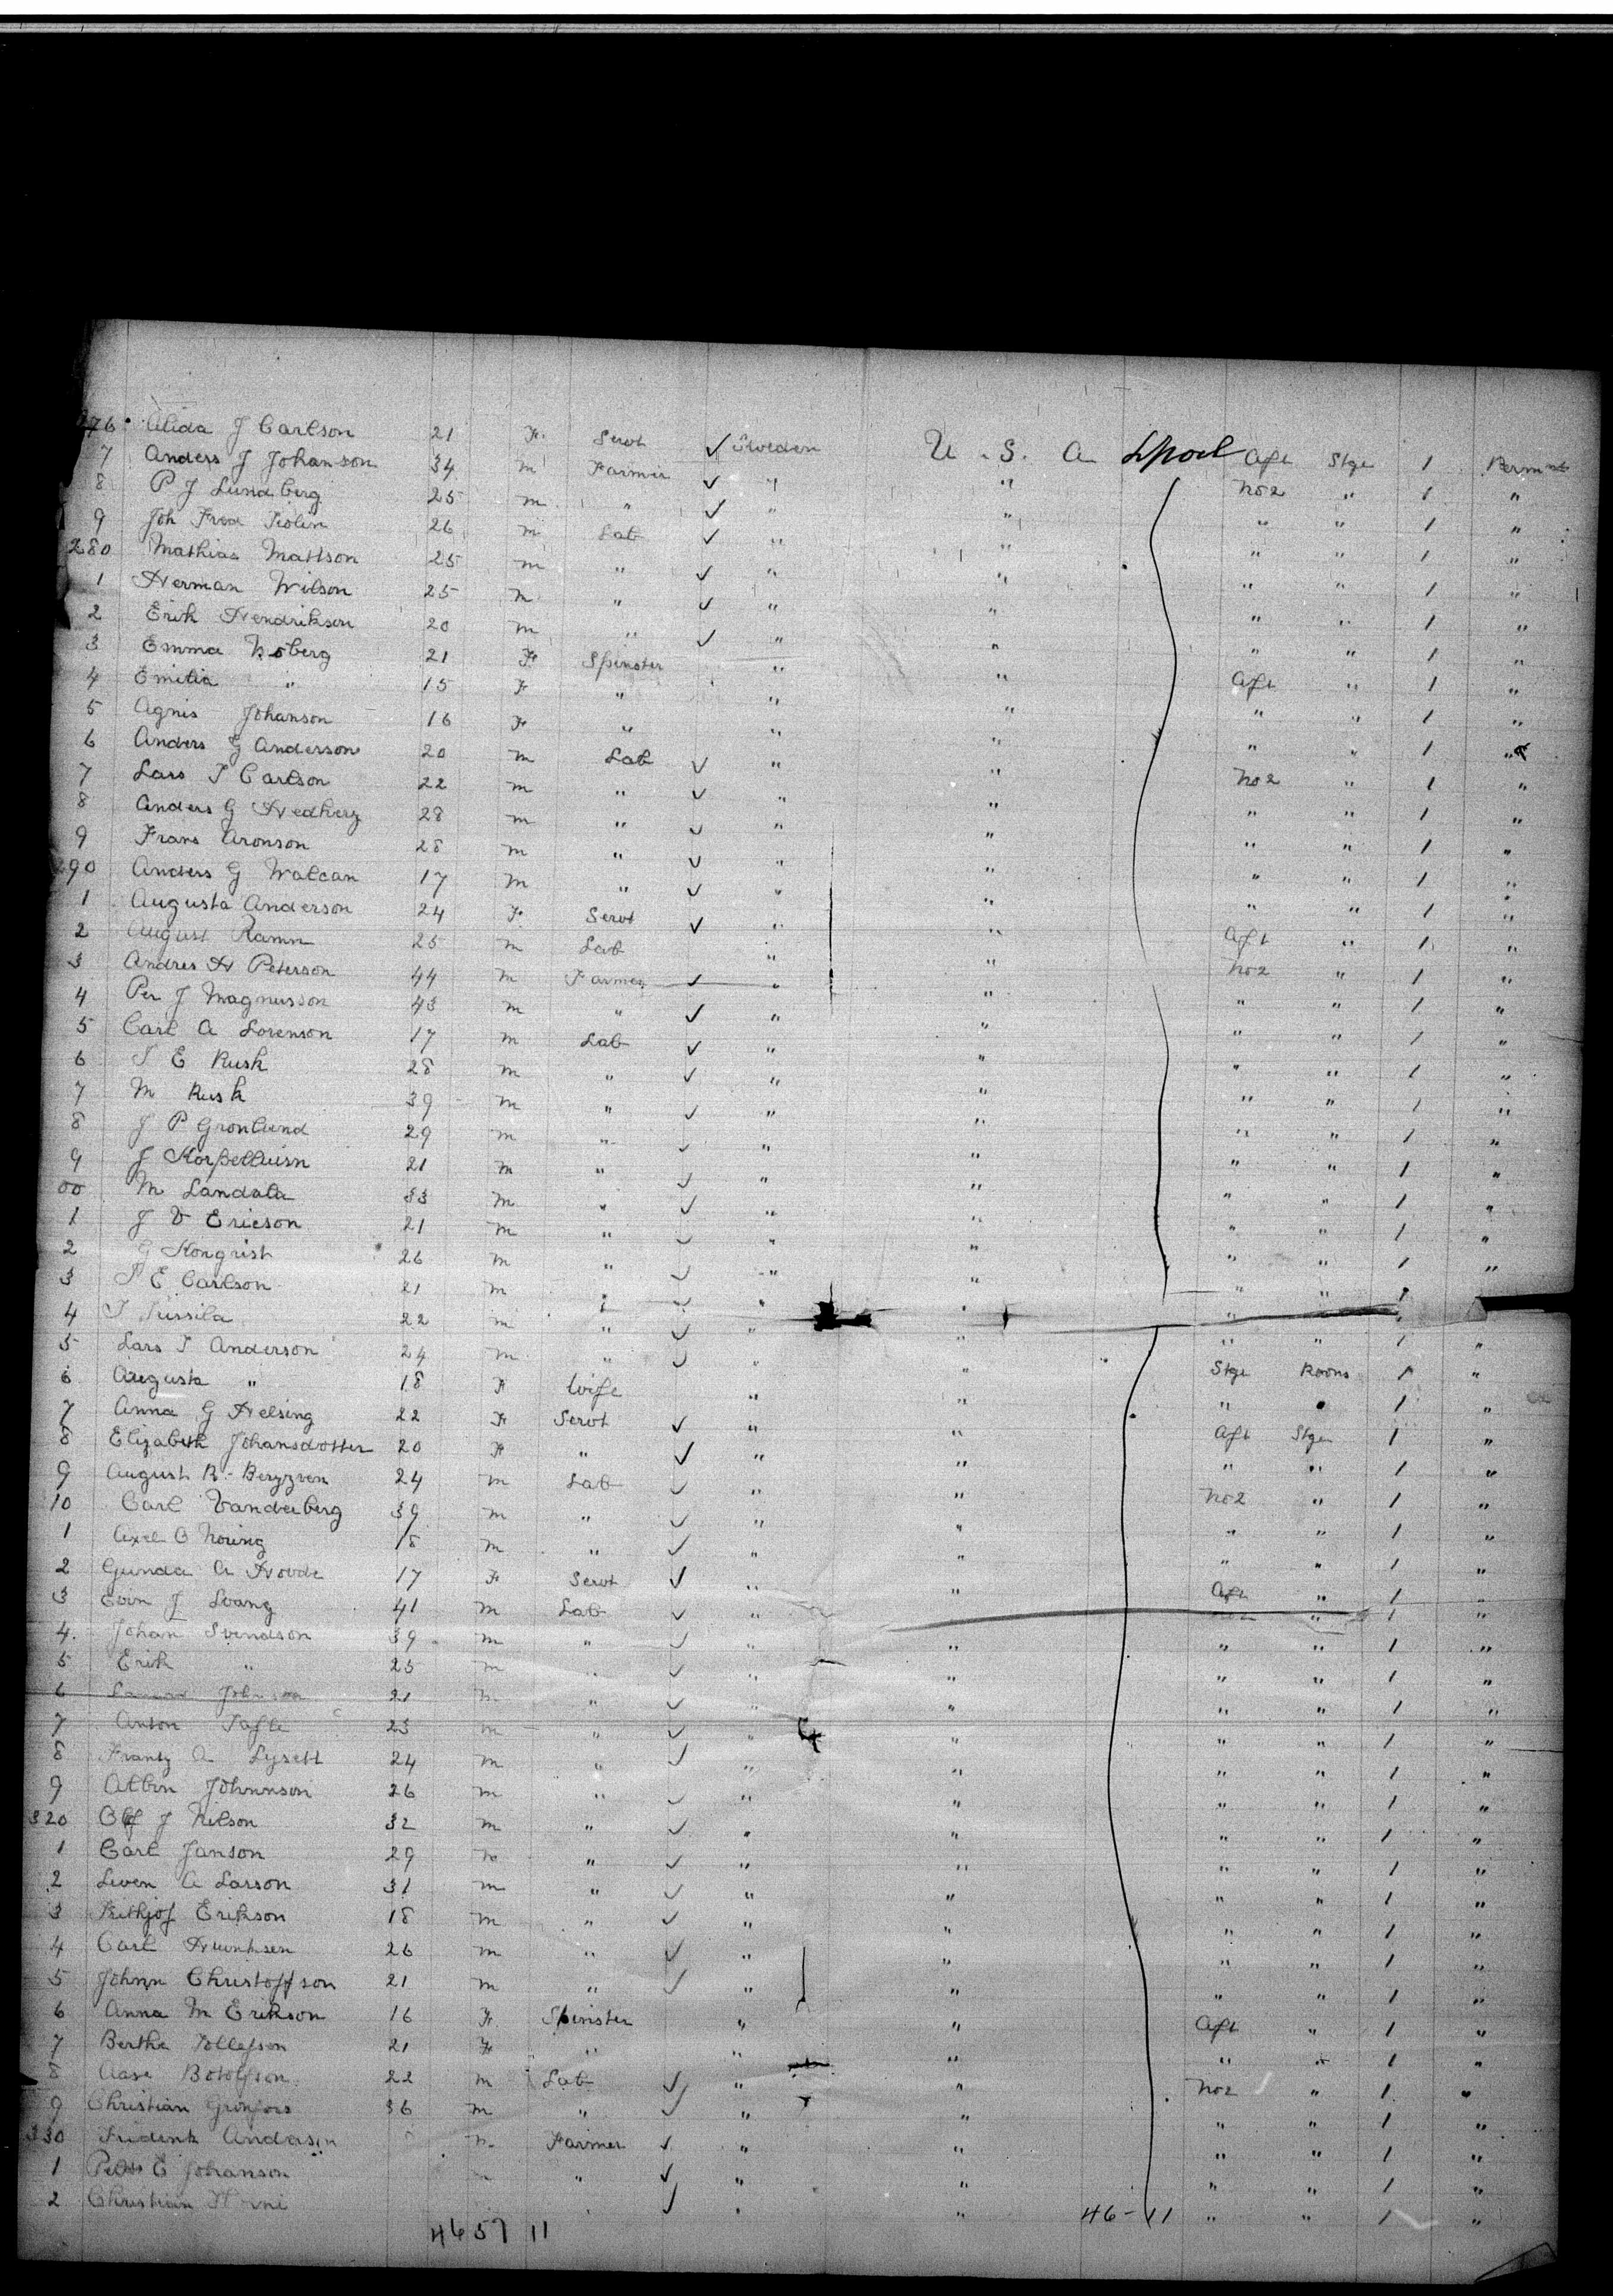 276 Alida J Carlson 21 F Servt ✓ Sweden U.S.A Lpool Aft Stge 1 Permnt
7 Anders J Johanson 34 m Farmer ✓ " " No2 " 1 "
8 P J Lundberg 25 m " ✓ " " " " 1 "
9 Joh Fred 26 m Lab ✓ " " " " 1 "
280 Mathias Mattson 25 m " ✓ " " " " 1 "
1 Herman Wilson 25 m " ✓ " " " " 1 "
2 Erik Hendrikson 20 m " ✓ " " " " 1 "
3 Emma Noberg 21 F Spinster " " Aft " 1 "
4 Emilia " 15 F " " " " " 1 "
5 Agnis Johanson 16 F " " " " " 1 "
6 Anders G Anderson 20 m Lab ✓ " " No2 " 1 "
7 Lars J Carlson 22 m " ✓ " " " " 1 "
8 Anders G Hedberg 28 m " ✓ " " " " 1 "
9 Frans Aronson 28 m " ✓ " " " " 1 "
290 Anders G Walcan 17 m " ✓ " " " " 1 "
1 Augusta Anderson 24 F Servt ✓ " " Aft " 1 "
2 August Ramn 25 m Lab " " No2 " 1 "
3 Andres H Peterson 44 m Farmer ✓ " " " " 1 "
4 Per J Magnusson 43 m " ✓ " " " " 1 "
5 Carl A Sorenson 17 m Lab ✓ " " " " 1 "
6 J E Rusk 28 m " ✓ " " " " 1 "
7 M Rusk 39 m " ✓ " " " " 1 "
8 J P Gronlund 29 m " ✓ " " " " 1 "
9 J 21 m " ✓ " " " " 1 "
00 M Landala 33 m " ✓ " " " " 1 "
1 J V Ericson 21 m " ✓ " " " " 1 "
2 G Kongrist 26 m " ✓ " " " " 1 "
3 E Carlson 21 m " ✓ " " " " 1 "
4 22 m " ✓ " " " "
5 Lars J Anderson 24 m " ✓ " " Stge Rooms 1 "
6 Augusta " 18 F Wife " " " " 1 "
7 Anna G Helsing 22 F Servt ✓ " " Aft Stge 1 "
8 Elizabeth Johansdotter 20 F " ✓ " " " " 1 "
9 August R 24 m Lab ✓ " " No2 " 1 "
10 Carl Vanderberg 39 m " ✓ " " " " 1 "
1 Axel O Noring 18 m " ✓ " " " " 1 "
2 Gunda A Hovde 17 F Servt ✓ " " Aft " 1 "
3 Evin J Svang 41 m Lab ✓ " " No2 " 1 "
4 Johan Svendson 39 m " ✓ " " " " 1 "
5 Erik " 25 m " ✓ " " " " 1 "
6 Johnson 21 m " ✓ " " " " 1 "
7 Anton Tafte 23 m " ✓ " " " " 1 "
8 Frantz A Lysett 24 m " ✓ " " " " 1 "
9 Albin Johnnson 26 m " ✓ " " " " 1 "
320 Olf J Nilson 32 m " ✓ " " " " 1 "
1 Carl Janson 29 m " ✓ " " " " 1 "
2 Swen A Larson 31 m " ✓ " " " " 1 "
3 Frithjof Erikson 18 m " ✓ " " " " 1 "
4 Carl 26 m " ✓ " " " " 1 "
5 Johnn Christoffson 21 m " ✓ " " " " 1 "
6 Anna M Erikson 16 F Spinster " " Aft " 1 "
7 Bertha Tollefson 21 F " " " " " 1 "
8 Aase Botolfson 22 m Lab ✓ " " No2 " 1 "
9 Christian 36 m " ✓ " " " " 1 "
330 Anderson m Farmer ✓ " " " " 1 "
1 E Johanson m " ✓ " " " " 1 "
2 Christian ✓ " " " " 1 "
46-11
46 57 11